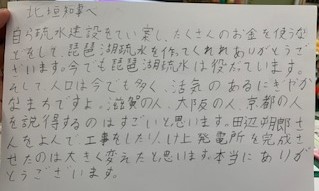 北垣知事へ
自ら疏水建設をてい案し、たくさんのお金を使うな
どをして琵琶湖疏水を作ってくれれありがとうご
ざいます。今でも琵琶湖疏水は役だっています。
そして、人口は今でも多く、活気のあるにぎやか
なまちですよ。滋賀の人、大阪の人、京都の人
を説得するのはすごいと思います。田辺朔郎さ
んをよんで、工事をしたり、け上発電所を完成さ
せたのは大きく変えたと思います。本当にありが
とうございます。